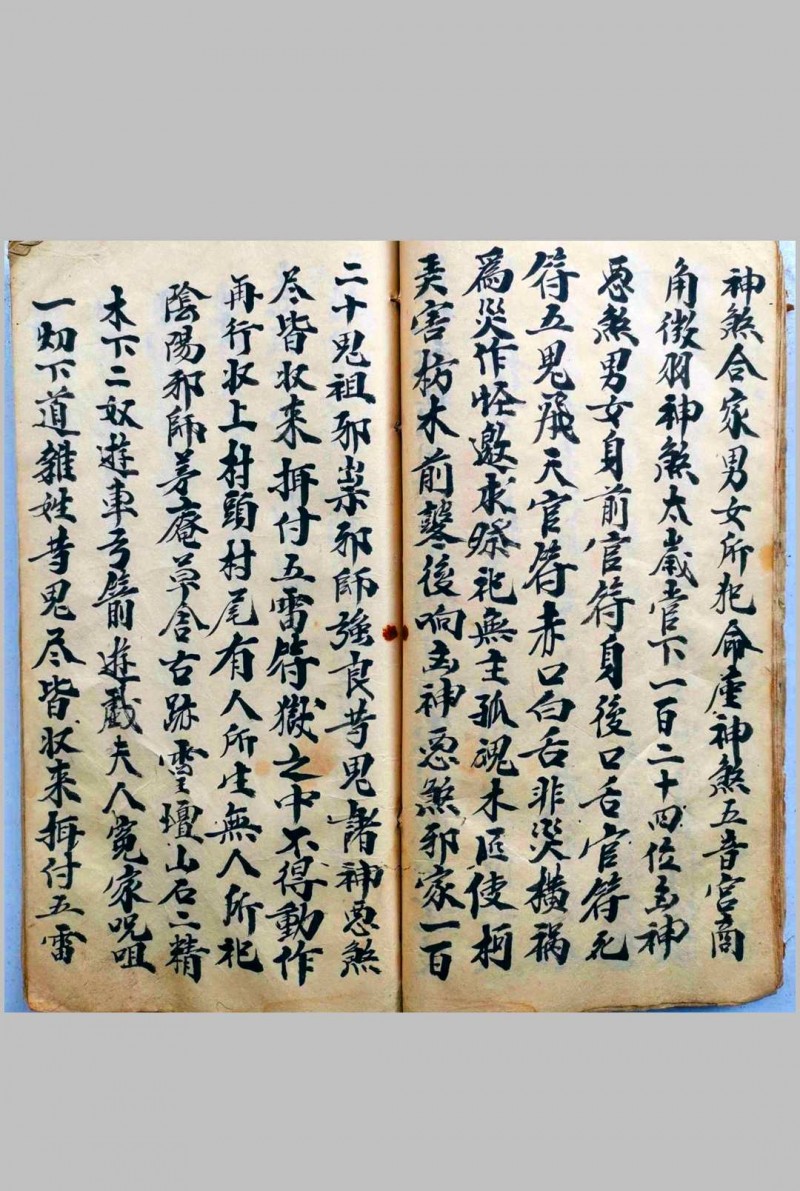 神煞合家男女所犯命座神煞五音宮商
角徵羽神煞太歲管下一百二十四位凶神
惡煞男女身前官符身後口舌官符死
符五鬼飛天官符赤口白舌非災橫禍
為災作怪邀求祭祀無主孤魂木匠使柯
弄害枋木前聲後响凶神惡煞邪家一百
二十鬼祖邪祟邪師強良等鬼諸神惡煞
尽皆收来押付五雷符獄之中不得動作
再行收上村頭村尾有人所生無人所祀
陰陽邪師茅庵草舍古跡靈壇山石二精
木下二奴遊車弓箭遊戲夫人冤家咒咀
一切下道雜姓等鬼尽皆收来押付五雷